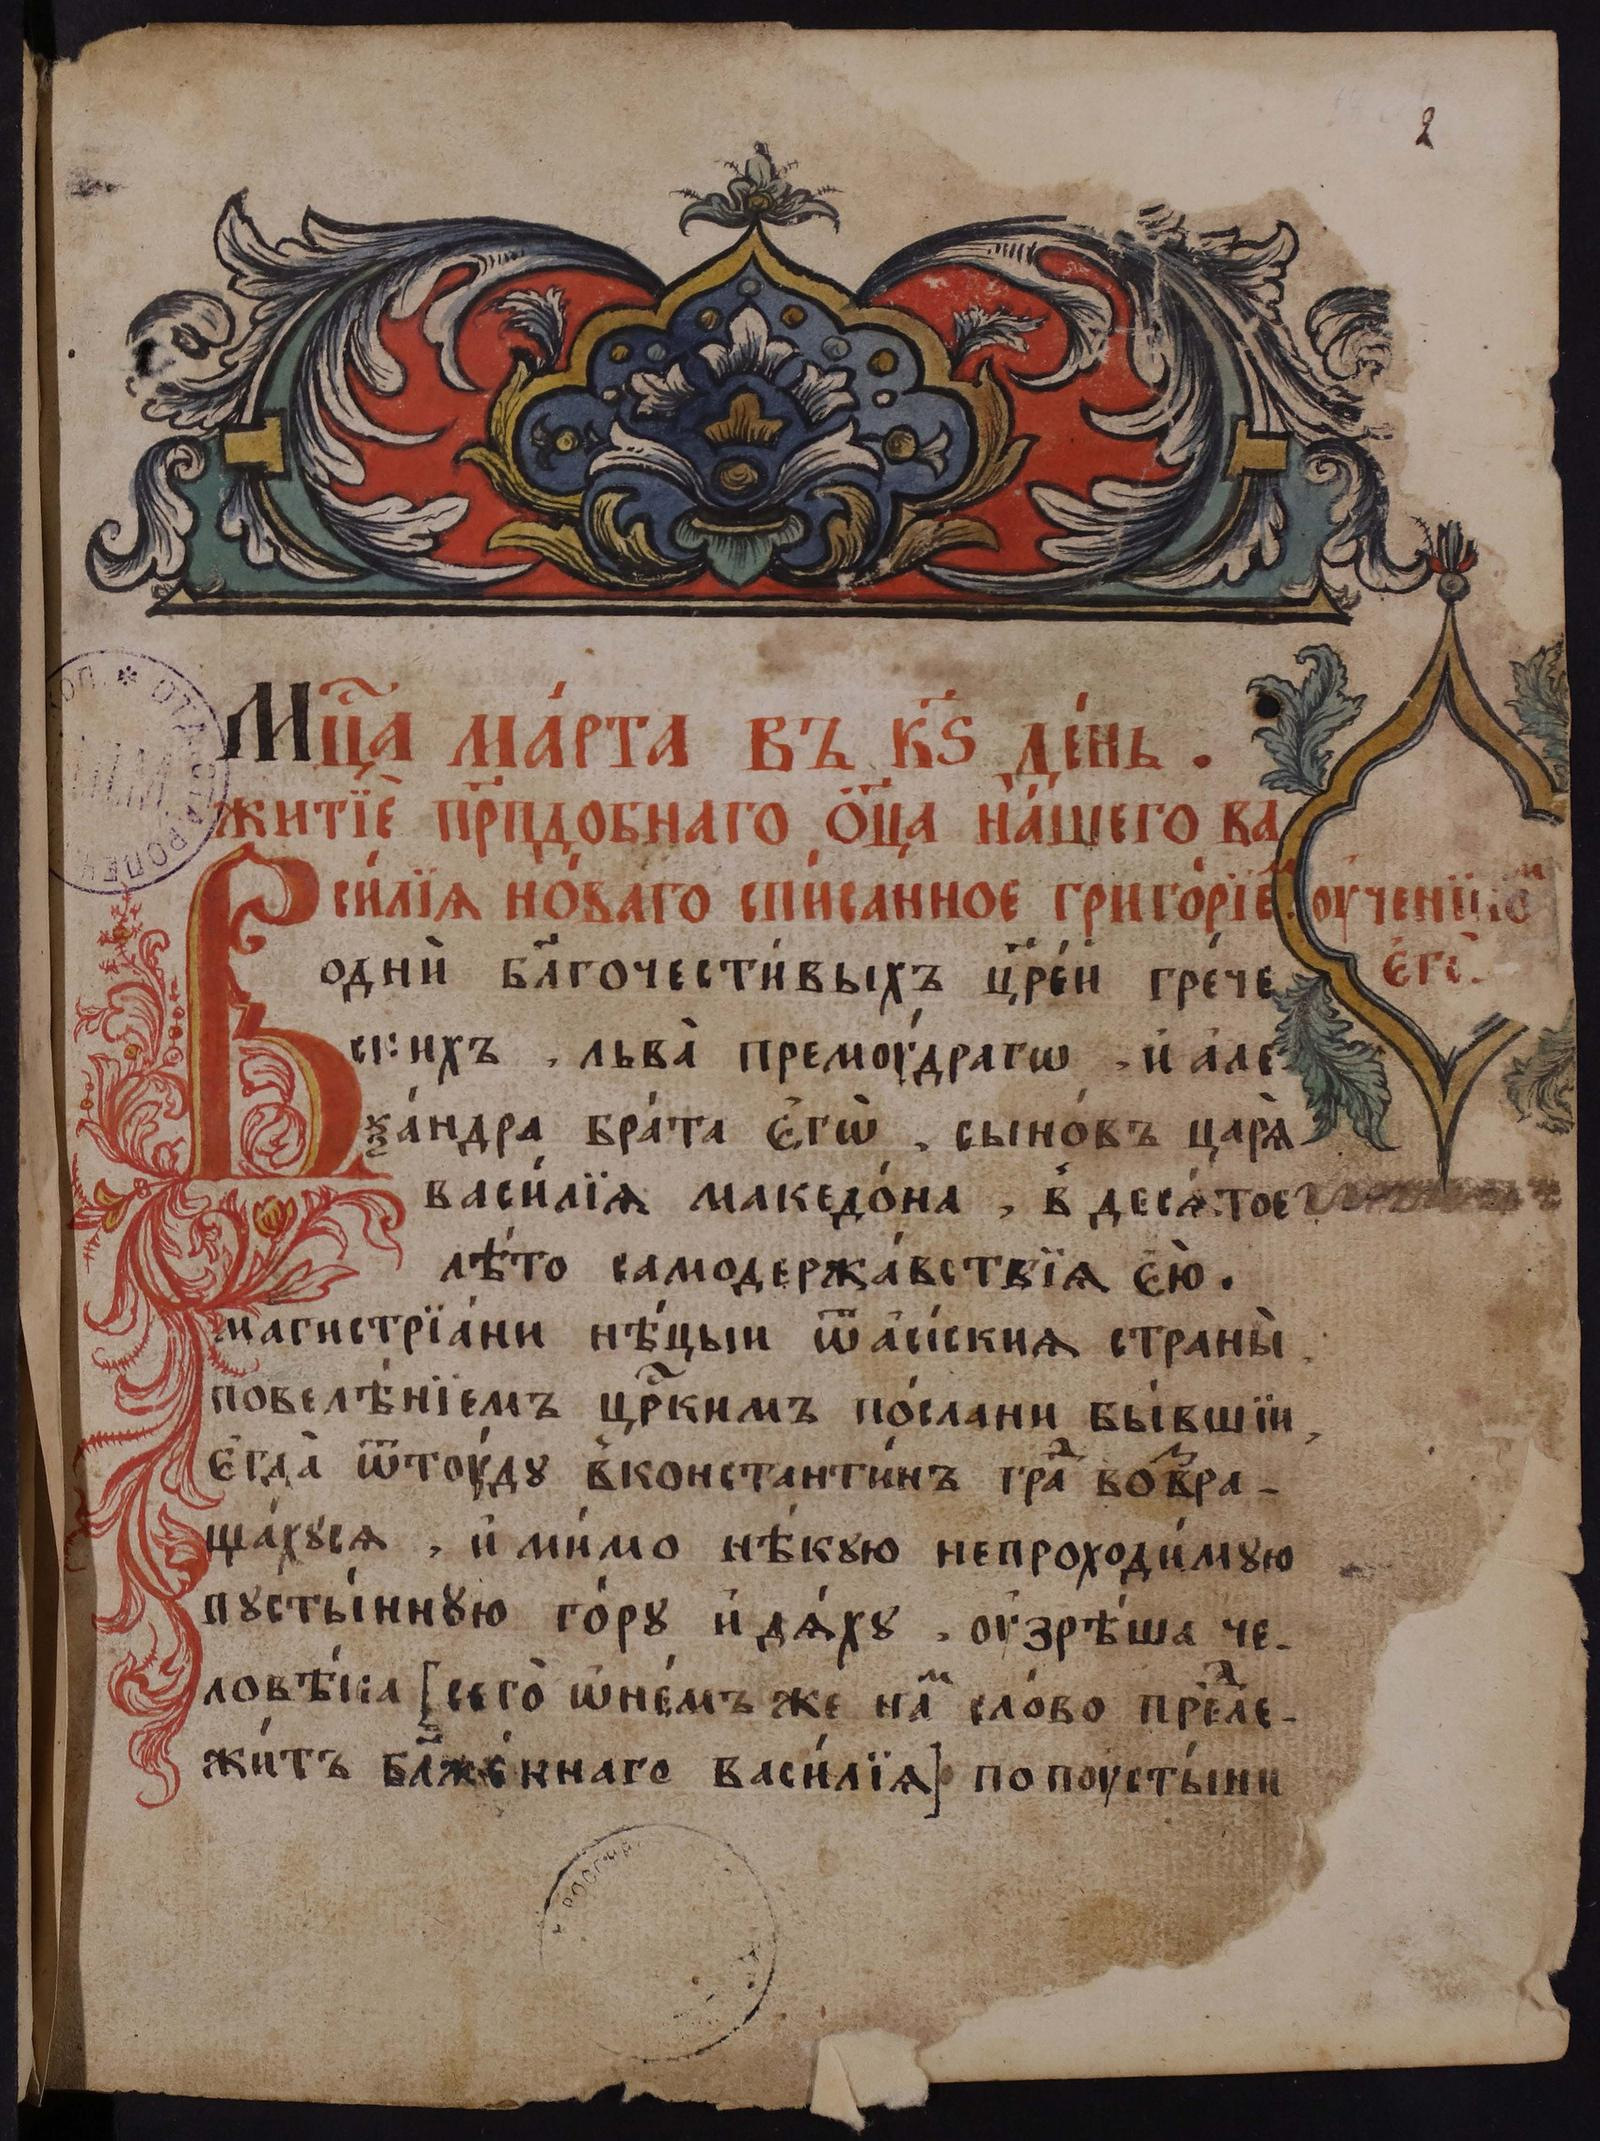 2
Мц҃а ма́рта въ к҃ѕ де́нь .
житїѐ прпⷣобнаго ѻ҆ц҃а на́шего ва
си́лїѧ но́ваго спи́санное григо́рїеⷨ. оу҆ченико́ⷨ
є҆гѡ̀.
Во дни̑ бл҃гочести́выхъ цр҃е́й гре́че
скихъ , льва̀ премоу́драгѡ , и҆ але
ѯа́ндра бра́та є҆гѡ̀ , сыно́въ царѧ̀
васи́лїѧ македо́на , в̾ десѧ́тое
лѣ́то самодержа́вствїѧ є҆ю̀ .
магистрїа́ни нѣ́цыи ѿ а҆сі́йскиѧ страны̀ ,
повелѣ́нїемъ цр҃кимъ по́слани бы́вшїи ,
є҆гда̀ ѿтоу́дꙋ в̾константи́нъ граⷣ воⷥвра-
ща́хꙋсѧ , и҆ ми́мо нѣ́кꙋю непроходи́мꙋю
пꙋсты́ннꙋю го́рꙋ и҆дѧ́хꙋ , оу҆зрѣ́ша че-
ловѣ́ка [сего̀ ѡ҆ не́мъ же наⷨ сло́во преⷣле-
жи́тъ бл҃же́ннаго васи́лїѧ] по поусты́ни